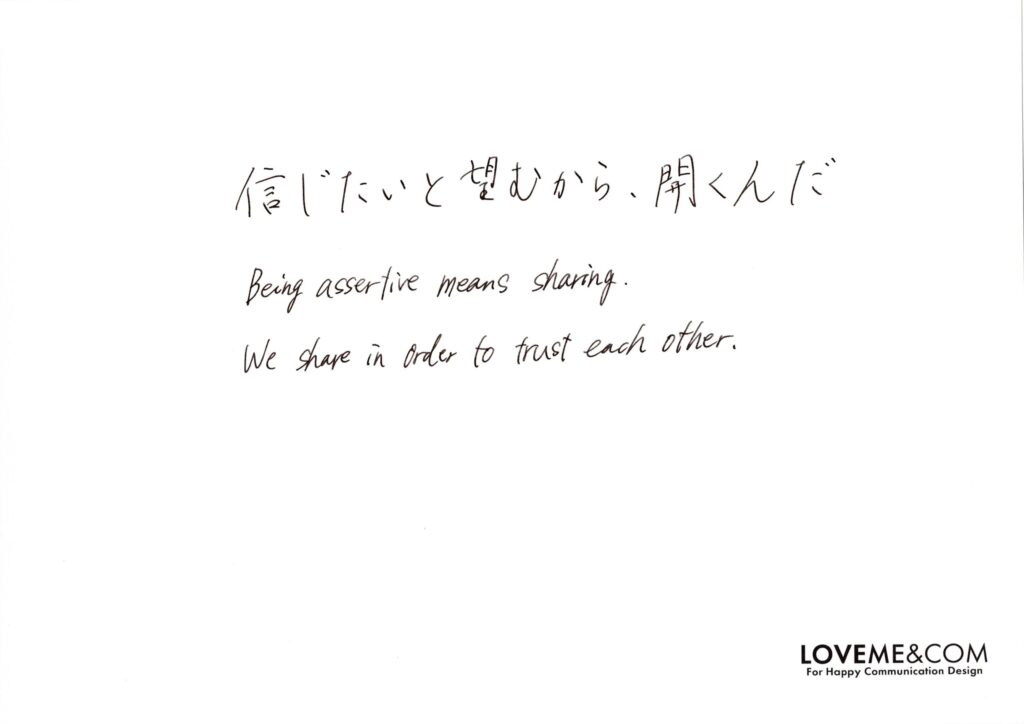 信じたいと望むから、開くんだ
Being assertive means sharing.
We share in order to trust each other.
LOVEME&COM
For Happy Communication Design